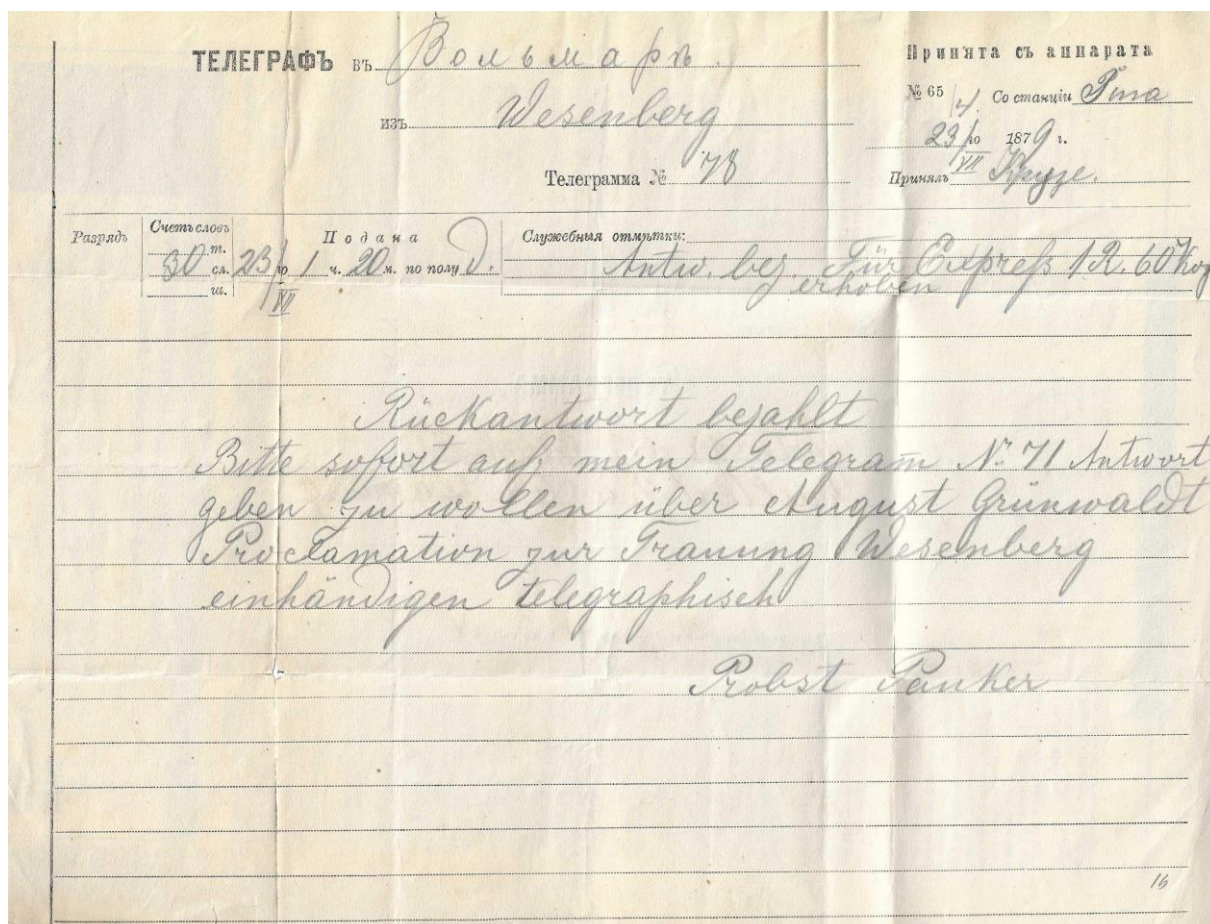 ТЕЛЕГРАФЪ въ Вольмаръ.
изъ Wesenberg
Телеграмма № 78
Принята съ аппарата
№ 65 /4. Со станціи Рига
23/го VII 1879 г.
Принялъ Крузе.
Разрядъ
Счетъ словъ
т.
30 сл.
ш.
Подана
23/го VII 1 ч. 20 м. по полу д.
Служебныя отмѣтки:
Antw. bez. Für Expreß 1 R. 60 Kop
erhoben
Rückantwort bezahlt
Bitte sofort auf mein Telegram̄ No 71 Antwort
geben zu wollen über August Grünwaldt
Proclamation zur Trauung Wesenberg
einhändigen telegraphisch
Probst Pauker
16